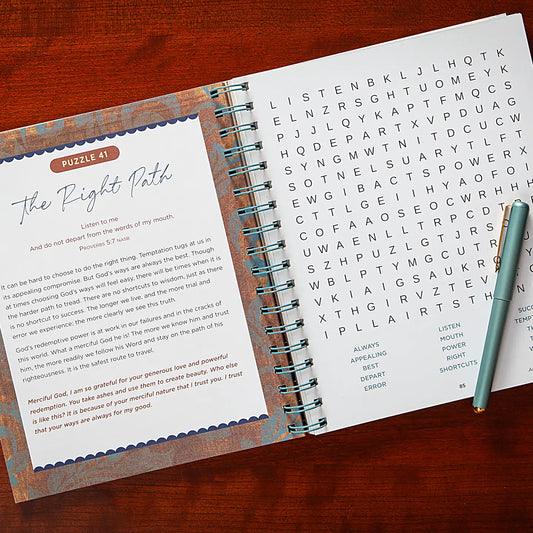 PUZZLE 41
The Right Path
Listen to me
And do not depart from the words of my mouth.
PROVERBS 5:7 NASB
It can be hard to choose to do the right thing. Temptation tugs at us in
its appealing compromise. But God's ways are always the best. Though
at times choosing God's ways will feel easy, there will be times when it is
the harder path to tread. There are no shortcuts to wisdom, just as there
is no shortcut to success. The longer we live, and the more trial and
error we experience, the more clearly we see this truth.
God's redemptive power is at work in our failures and in the cracks of
this world. What a merciful God he is! The more we know him and trust
him, the more readily we follow his Word and stay on the path of his
righteousness. It is the safest route to travel.
Merciful God, I am so grateful for your generous love and powerful
redemption. You take ashes and use them to create beauty. Who else
is like this? It is because of your merciful nature that I trust you. I trust
that your ways are always for my good.
L I S T E N B K L J L H Q T K
E L N Z R S G H T U O M E Y K
P J J L Q Y K A P T F M Q C S
H Q D E P A R T X V P D U A G
S Y N G M W T N I T D C U C W
S O T N E L S U A R Y T L F T
E W G I B A C T S P O W E R X
C T T L G E I I H Y A O F O I
C O F A A O S E O C W R H H
U W A E N L L T R P C D T
S Z H P U Z L G T J R S
W B L P T Y M G C U T R
V K I A I G S A U K R
X T H G I R V Z T E V
I P L L A I R T S T H
ALWAYS
APPEALING
BEST
DEPART
ERROR
LISTEN
MOUTH
POWER
RIGHT
SHORTCUTS
85